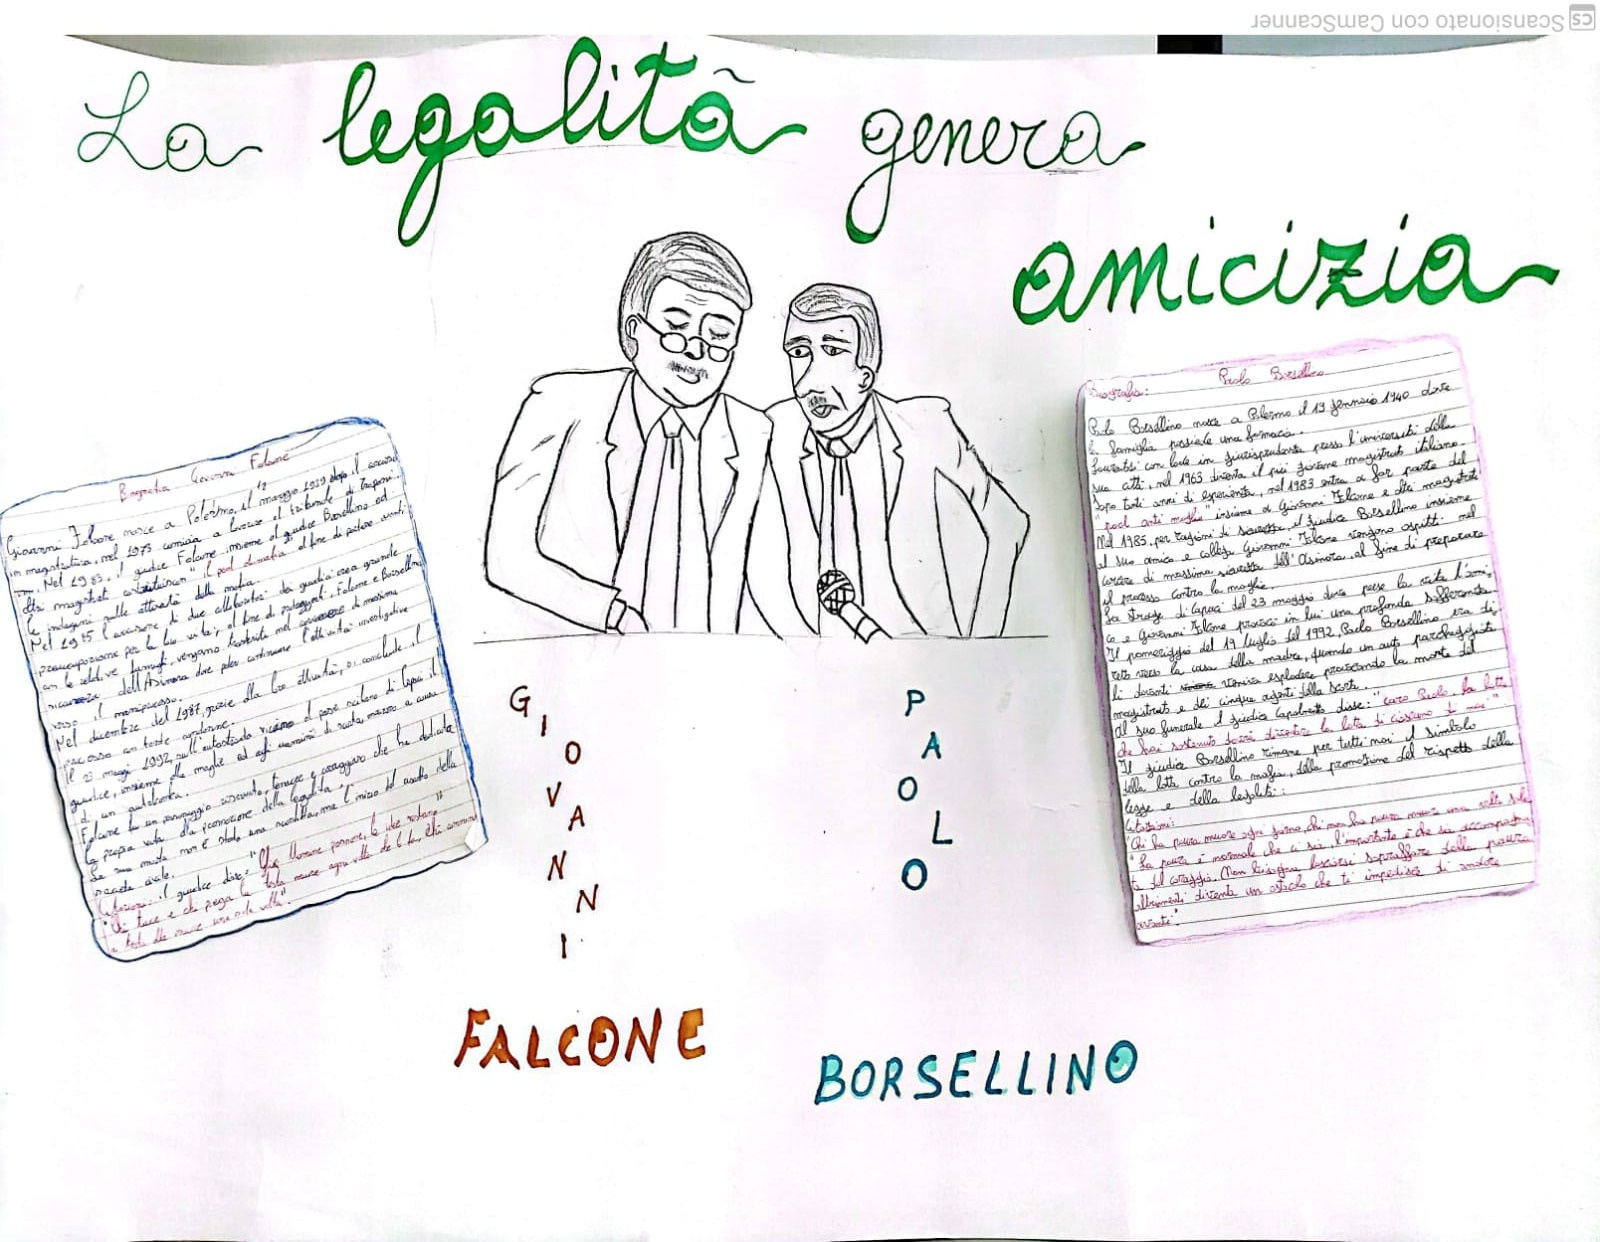 Scansionato con CamScanner
La legalità genera
amicizia
Biografia Giovanni Falcone
Giovanni Falcone nasce a Palermo, il 12 maggio 1939 dopo il
in magistratura, nel 1973 comincia a lavorare al tribunale di Trapani.
Nel 1983, il giudice Falcone insieme al giudice Borsellino ed
altri magistrati costituiscono il pool antimafia al fine di portare avanti
le indagini sulle attività della mafia.
Nel 1985 l'uccisione di due collaboratori dei giudici crea grande
preoccupazione per la loro vita, al fine di proteggerli, Falcone e Borsellino
con le relative famiglie, vengono trasferiti nel carcere di massima
sicurezza dell'Asinara dove poter continuare l'attività investigativa
verso il maxiprocesso.
Nel dicembre del 1987, grazie alla loro attività, si conclude il
processo con tante condanne.
Il 23 maggio 1992, sull'autostrada vicino al paese siciliano di Capaci il
giudice, insieme alla moglie ed agli uomini di scorta, muore a causa
di un autobomba.
Falcone fu un personaggio, tenace e coraggioso che ha dedicato
la propria vita alla promozione della legalità.
La sua morte non è stata una sconfitta, ma l'inizio del riscatto della
società civile.
Citazioni: il giudice disse: "Gli uomini passano, le idee restano"
"Chi tace e chi piega la testa muore ogni volta che lo fa, chi cammina
a testa alta muore una sola volta".
Biografia: Paolo Borsellino
Paolo Borsellino nasce a Palermo il 19 gennaio 1940 dove
la famiglia possiede una farmacia.
Laureatosi con lode in giurisprudenza presso l'università della
sua città, nel 1963 diventa il più giovane magistrato italiano.
Dopo tanti anni di esperienza, nel 1983 entra a far parte del
"pool anti mafia" insieme a Giovanni Falcone e altri magistrati
Nel 1985, per ragioni di sicurezza, il giudice Borsellino insieme
al suo amico e collega Giovanni Falcone vengono ospitati nel
carcere di massima sicurezza dell'Asinara, al fine di preparare
il processo contro la mafia.
La strage di Capaci del 23 maggio dove perse la vita l'ami-
co e Giovanni Falcone provocò in lui una profonda sofferenza.
Il pomeriggio del 19 luglio del 1992, Paolo Borsellino era di-
retto verso la casa della madre, quando un auto parcheggiata
lì davanti veniva esplodere provocando la morte del
magistrato e dei cinque agenti della scorta.
Al suo funerale il giudice Caponnetto disse: "caro Paolo, la lotta
che hai sostenuto dovrà diventare la lotta di ciascuno di noi".
Il giudice Borsellino rimane per tutti noi il simbolo
della lotta contro la mafia, della promozione del rispetto della
legge e della legalità.
Citazioni:
"Chi ha paura muore ogni giorno, chi non ha paura muore una volta sola
"La paura è normale che ci sia, l'importante è che sia accompagna
ta dal coraggio. Non bisogna lasciarsi sopraffare dalla paura
altrimenti diventa un ostacolo che ti impedisce di andare
avanti"
GIOVANNI
PAOLO
FALCONE
BORSELLINO